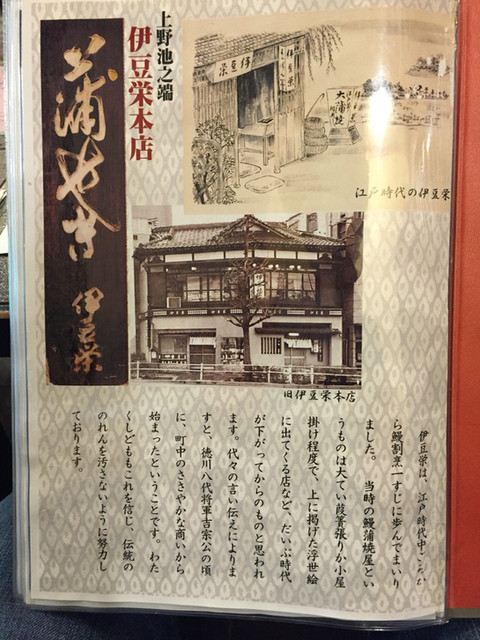 上野池之端
伊豆栄本店
蒲やき
伊豆栄
伊豆栄
伊豆栄
大蒲焼
江戸時代の伊豆栄
旧伊豆栄本店
伊豆栄は、江戸時代中ごろか
ら鰻割烹一すじに歩んでまいり
ました。　当時の鰻蒲焼屋とい
うものは大てい葭簀張りか小屋
掛け程度で、上に掲げた浮世絵
に出てくる店など、だいぶ時代
が下がってからのものと思われ
ます。代々の言い伝えによりま
すと、徳川八代将軍吉宗公の頃
に、町中のささやかな商いから
始まったということです。わた
くしどももこれを信じ、伝統の
のれんを汚さないように努力し
ております。